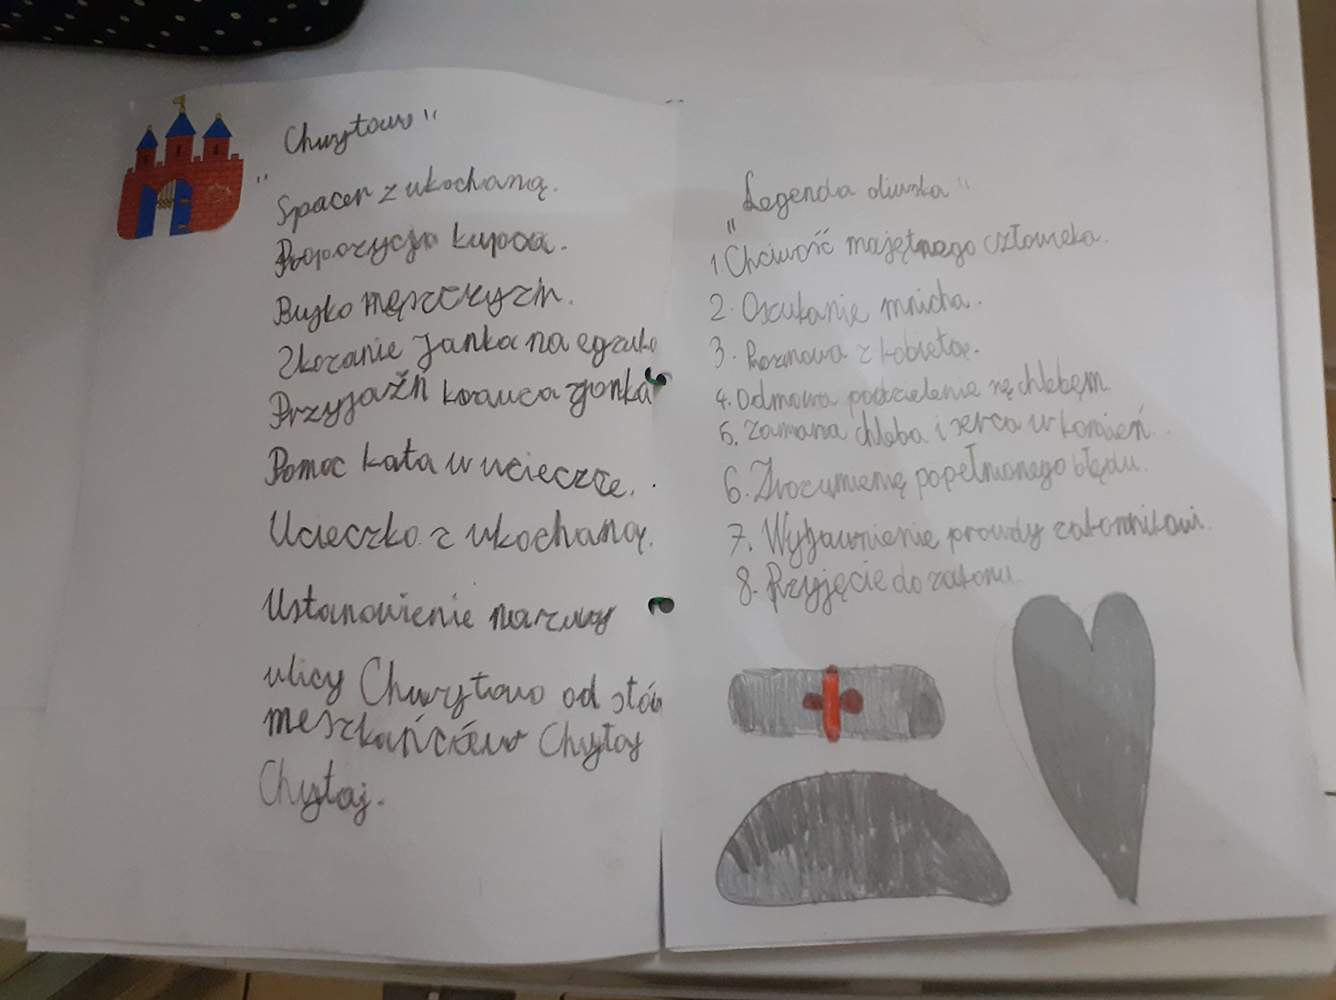 „Chwytowo"
Spacer z ukochaną.
Propozycja kupca.
Bujko mężczyzin.
Zkazanie Janka na egzeku
Przyjaźń krawca z Janka
Pomoc kata w ucieczce.
Ucieczka z ukochaną.
Ustanowienie nazwy
ulicy Chwytowo od słów
meszkańców Chytaj
Chytaj.
„Legenda oliwska"
1. Chciwość majętnego człowieka.
2. Oszukanie mnicha.
3. Rozmowa z kobietą.
4. Odmowa podzielenie się chlebem.
5. Zamiana chleba i serca w kamień.
6. Zrozumienie popełnionego błędu.
7. Wyjawnienie prawdy zakonnikowi.
8. Przyjęcie do zakonu